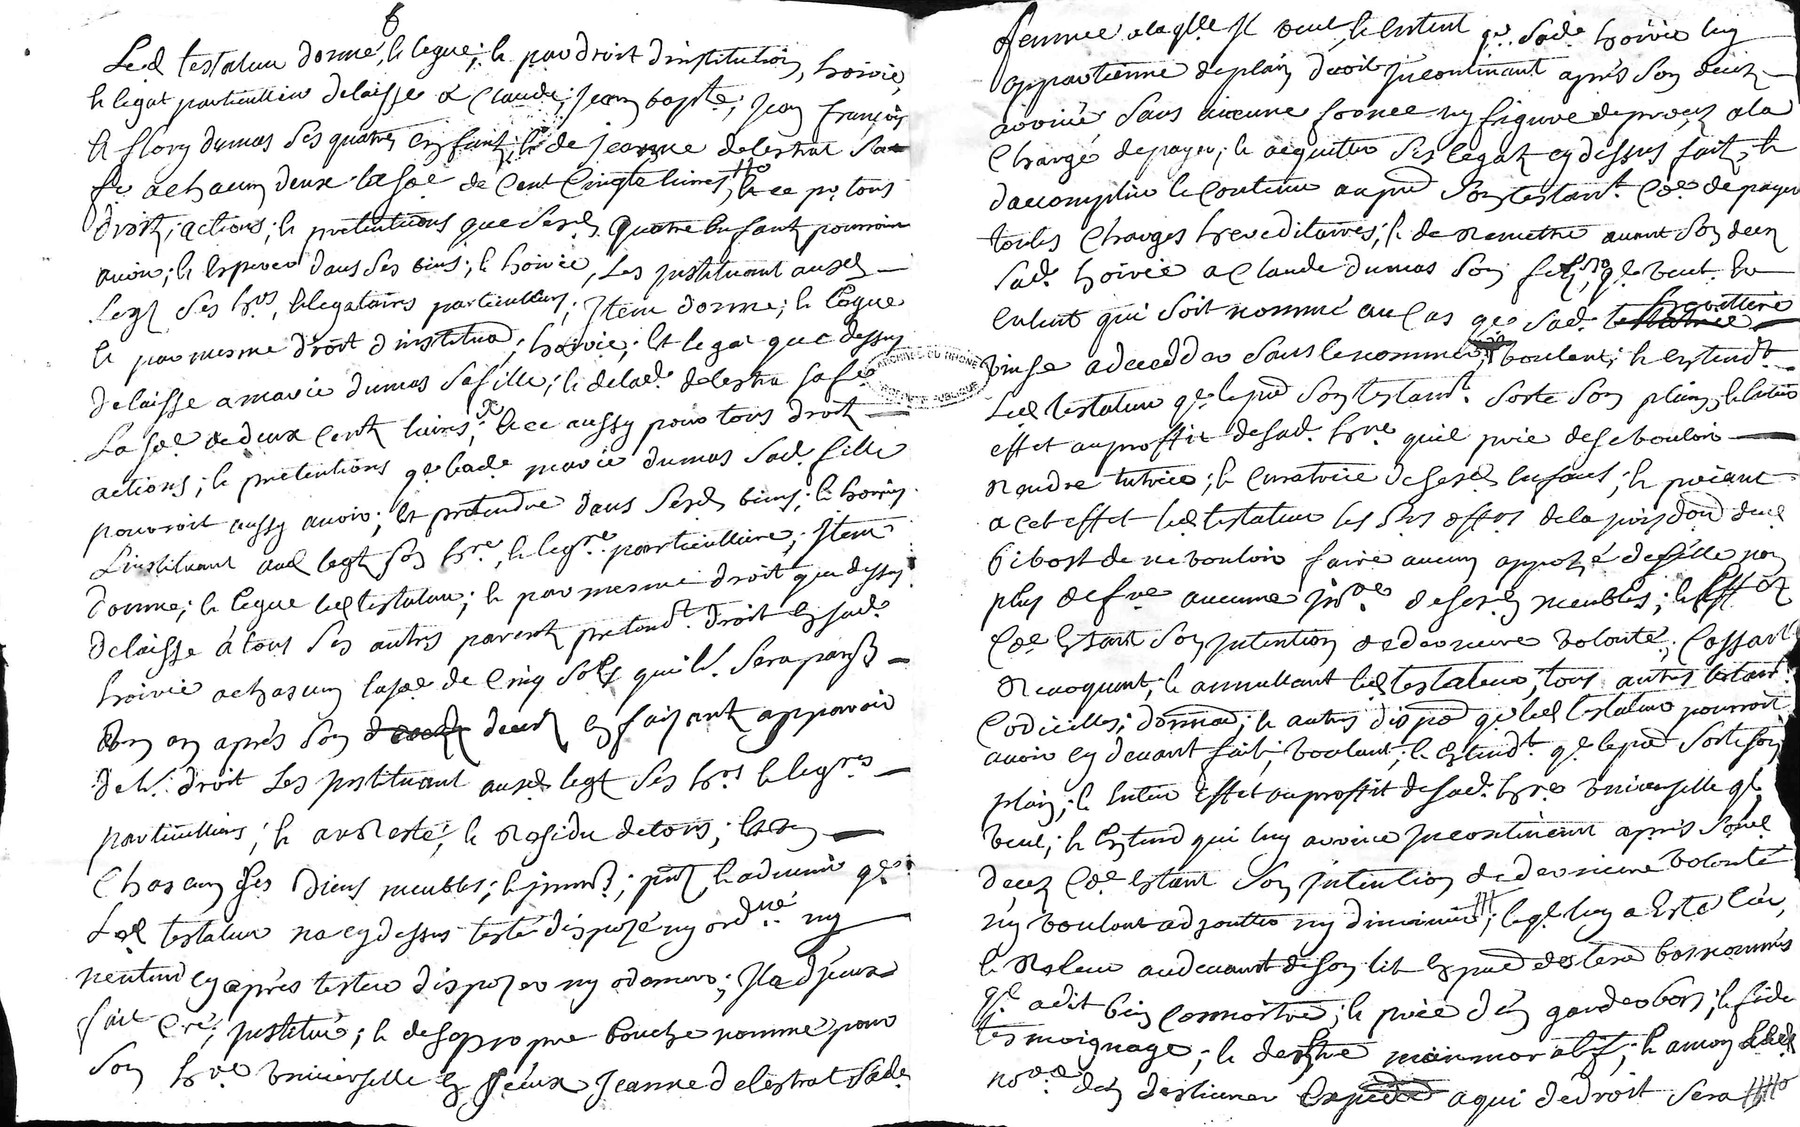 6
Led testateur donne, & legue; & par droit dinstitution, hoirie,
& legat particullier delaisse a Claude; Jean bapte; Jean françois
& flory dumas ses quatres enfant, & de Jeanne delestrat sa
fe a chacun deux la soe de Cent Cinqte livres, & ce pr tous
droits; actions; & pretentions que sesd. quatre enfants pourroient
avoir; & Esperer dans ses biens; & hoirie, Les Instituant auxd
Legs ses hrs, & legataires particulliers; Item donne; & legue
& par mesme droit dinstituon; hoirie; Et legat que dessus
delaisse a marie dumas sa fille; & de lade delestra sa fe
La soe de deux Cents livres; & ce aussy pour tous droits
actions; & pretentions qe lade marie dumas sad. fille
pourroit aussy avoir; Et pretendre dans sesd biens; & hoirie
L'instituant aud legt son hre, & legre particulliere; Item
donne; & legue led testateur; & par mesme droit que dessus
delaisse à tous ses autres parents pretendt. droit en sad.
hoirie a chascun la soe de Cinq sols qui lr. sera payé
Un an après son decedz en faisant apparoir
de lr. droit Les Instituant auxd legt ses hrs & legres
particulliers; & au Reste; & Residu de tous; &
Chascun ses biens meubles; & immeubles; pnts, & advenir qe
Led testateur na cy dessus testé disposé ny ordonné ny
nentend cy après tester disposer ny ordonner; Il a d'jceux
fait Créé, Institué; & de sa propre bouche nommé pour
Son hre Universelle en Jceux Jeanne delestrat sade
femme a laqlle Il veut, & entent qe sade hoirie luy
appartienne de plain droit Incontinant après son decez
arrivé sans aucune forme ny figure de procez a la
Charge de payer; & acquitter ses legats cy dessus fait, &
daccomplir le contenu au pnt Son testant. Coe de payer
toutes Charges hereditaires; & de Remettre avant son decez
sad. hoirie a Claude dumas son fils, qe veut &
entent qui soit nommé au Cas qe sad. heretiere
vinse a decedder sans le nommer; voulant; & entendt
Led testateur qe le pnt son testant. sorte son plain, & entier
effet au proffit de sad. hre quil prie de se vouloir
Randre tutrice; & Curatrice de sesd enfans; & priant
a cet effet led testateur les srs offrs de la jurisdon dud
bibost de ne vouloir faire aucun apposé de scelle non
plus de fre aucune Inve de sesd meubles; & effets
Coe Estant son Intention & derniere volonté; Cassant
Revoquant; & annullant led testateur, tous autres testant.
Codicilles; donnaon; & autres dispoon qe led testateur pourroit
avoir cy devant fait; voulant; & Entendt. qe le pnt sorte son
plain; & Entier Effet au proffit de sad. hre Universelle qe
veut; & Entend qui luy arrive Incontinant après sond
decez Coe Estant son Intention & derniere volonté
ny voulant adjoutter ny diminuer; leql luy a Esté leu,
& Releu au devant de son lit En pnce des tesm bas nommés
ql. a dit bien connoitre; & prié d'en garder bon; & fidel
tesmoignage; & destre memoratifs; & a moy led
nore d'en deslivrer Expedon a qui de droit sera